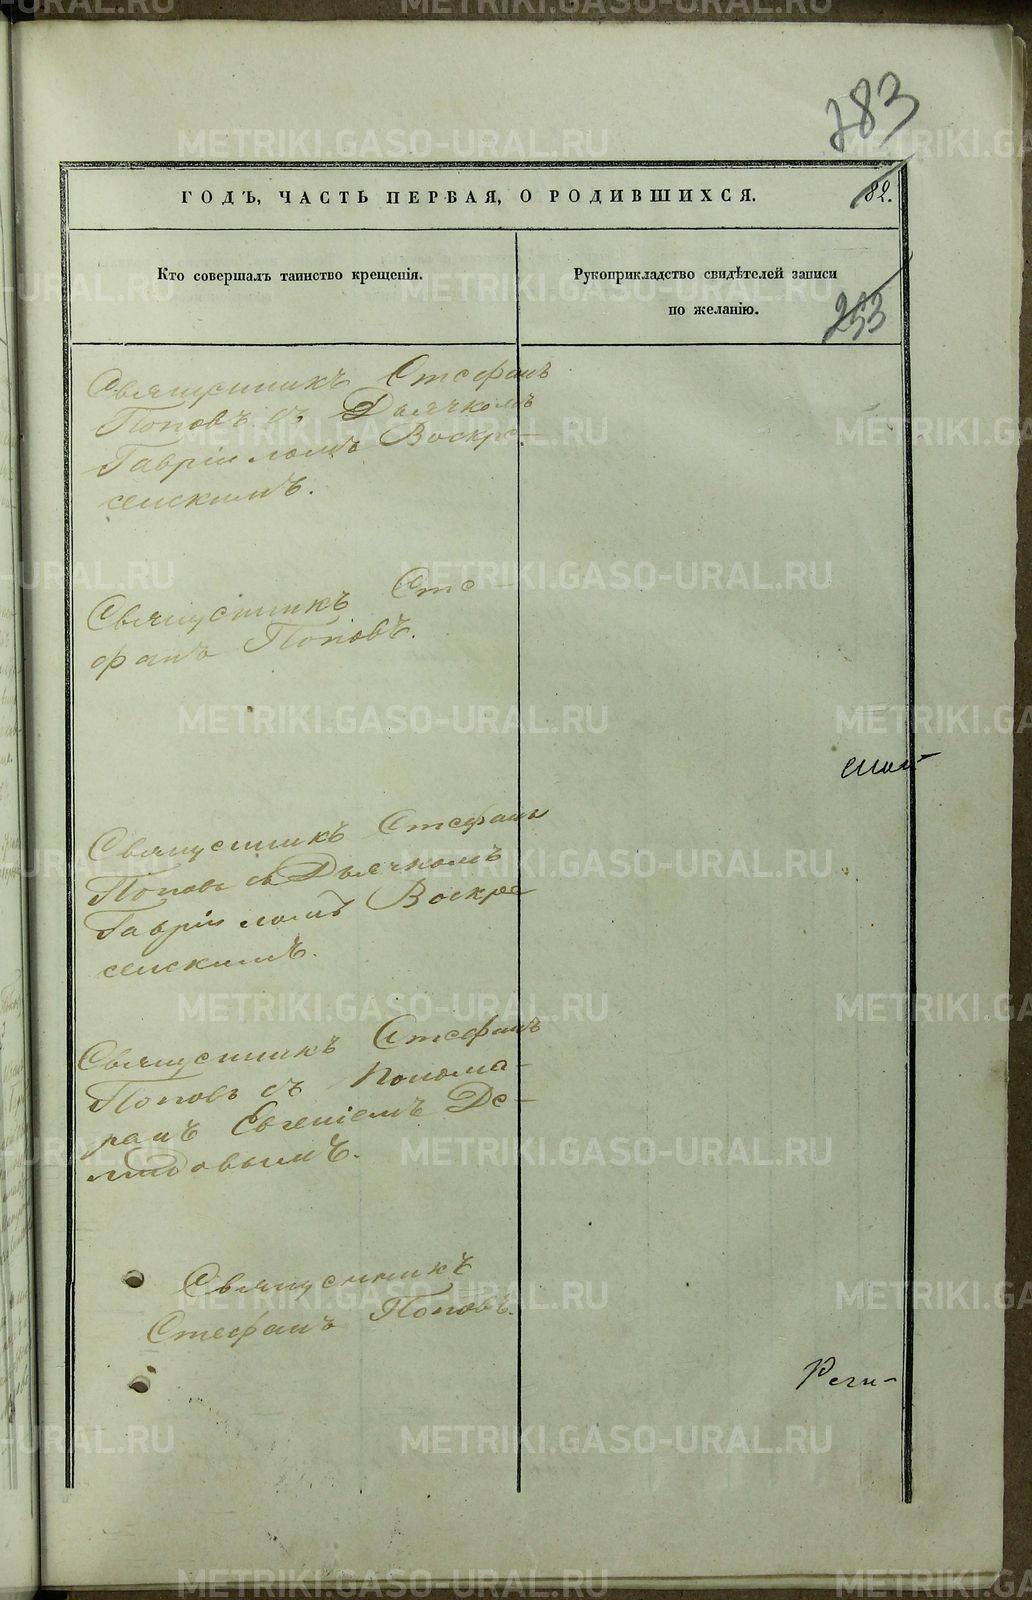 283
ГОДЪ, ЧАСТЬ ПЕРВАЯ, О РОДИВШИХСЯ.
82.
Кто совершалъ таинство крещенія.
Рукоприкладство свидѣтелей записи
по желанію.
253
Священникъ Стефанъ
Поповъ съ Дьячкомъ
Гавріиломъ Воскре-
сенскимъ.
Священникъ Сте-
фанъ Поповъ.
Священникъ Стефанъ
Поповъ съ Дьячкомъ
Гавріиломъ Воскре
сенскимъ.
Священникъ Стефанъ
Поповъ съ Понома-
рамъ Евгеніемъ Де-
мидовымъ.
Священникъ
Стефанъ Поповъ.
METRIKI.GASO-URAL.RU